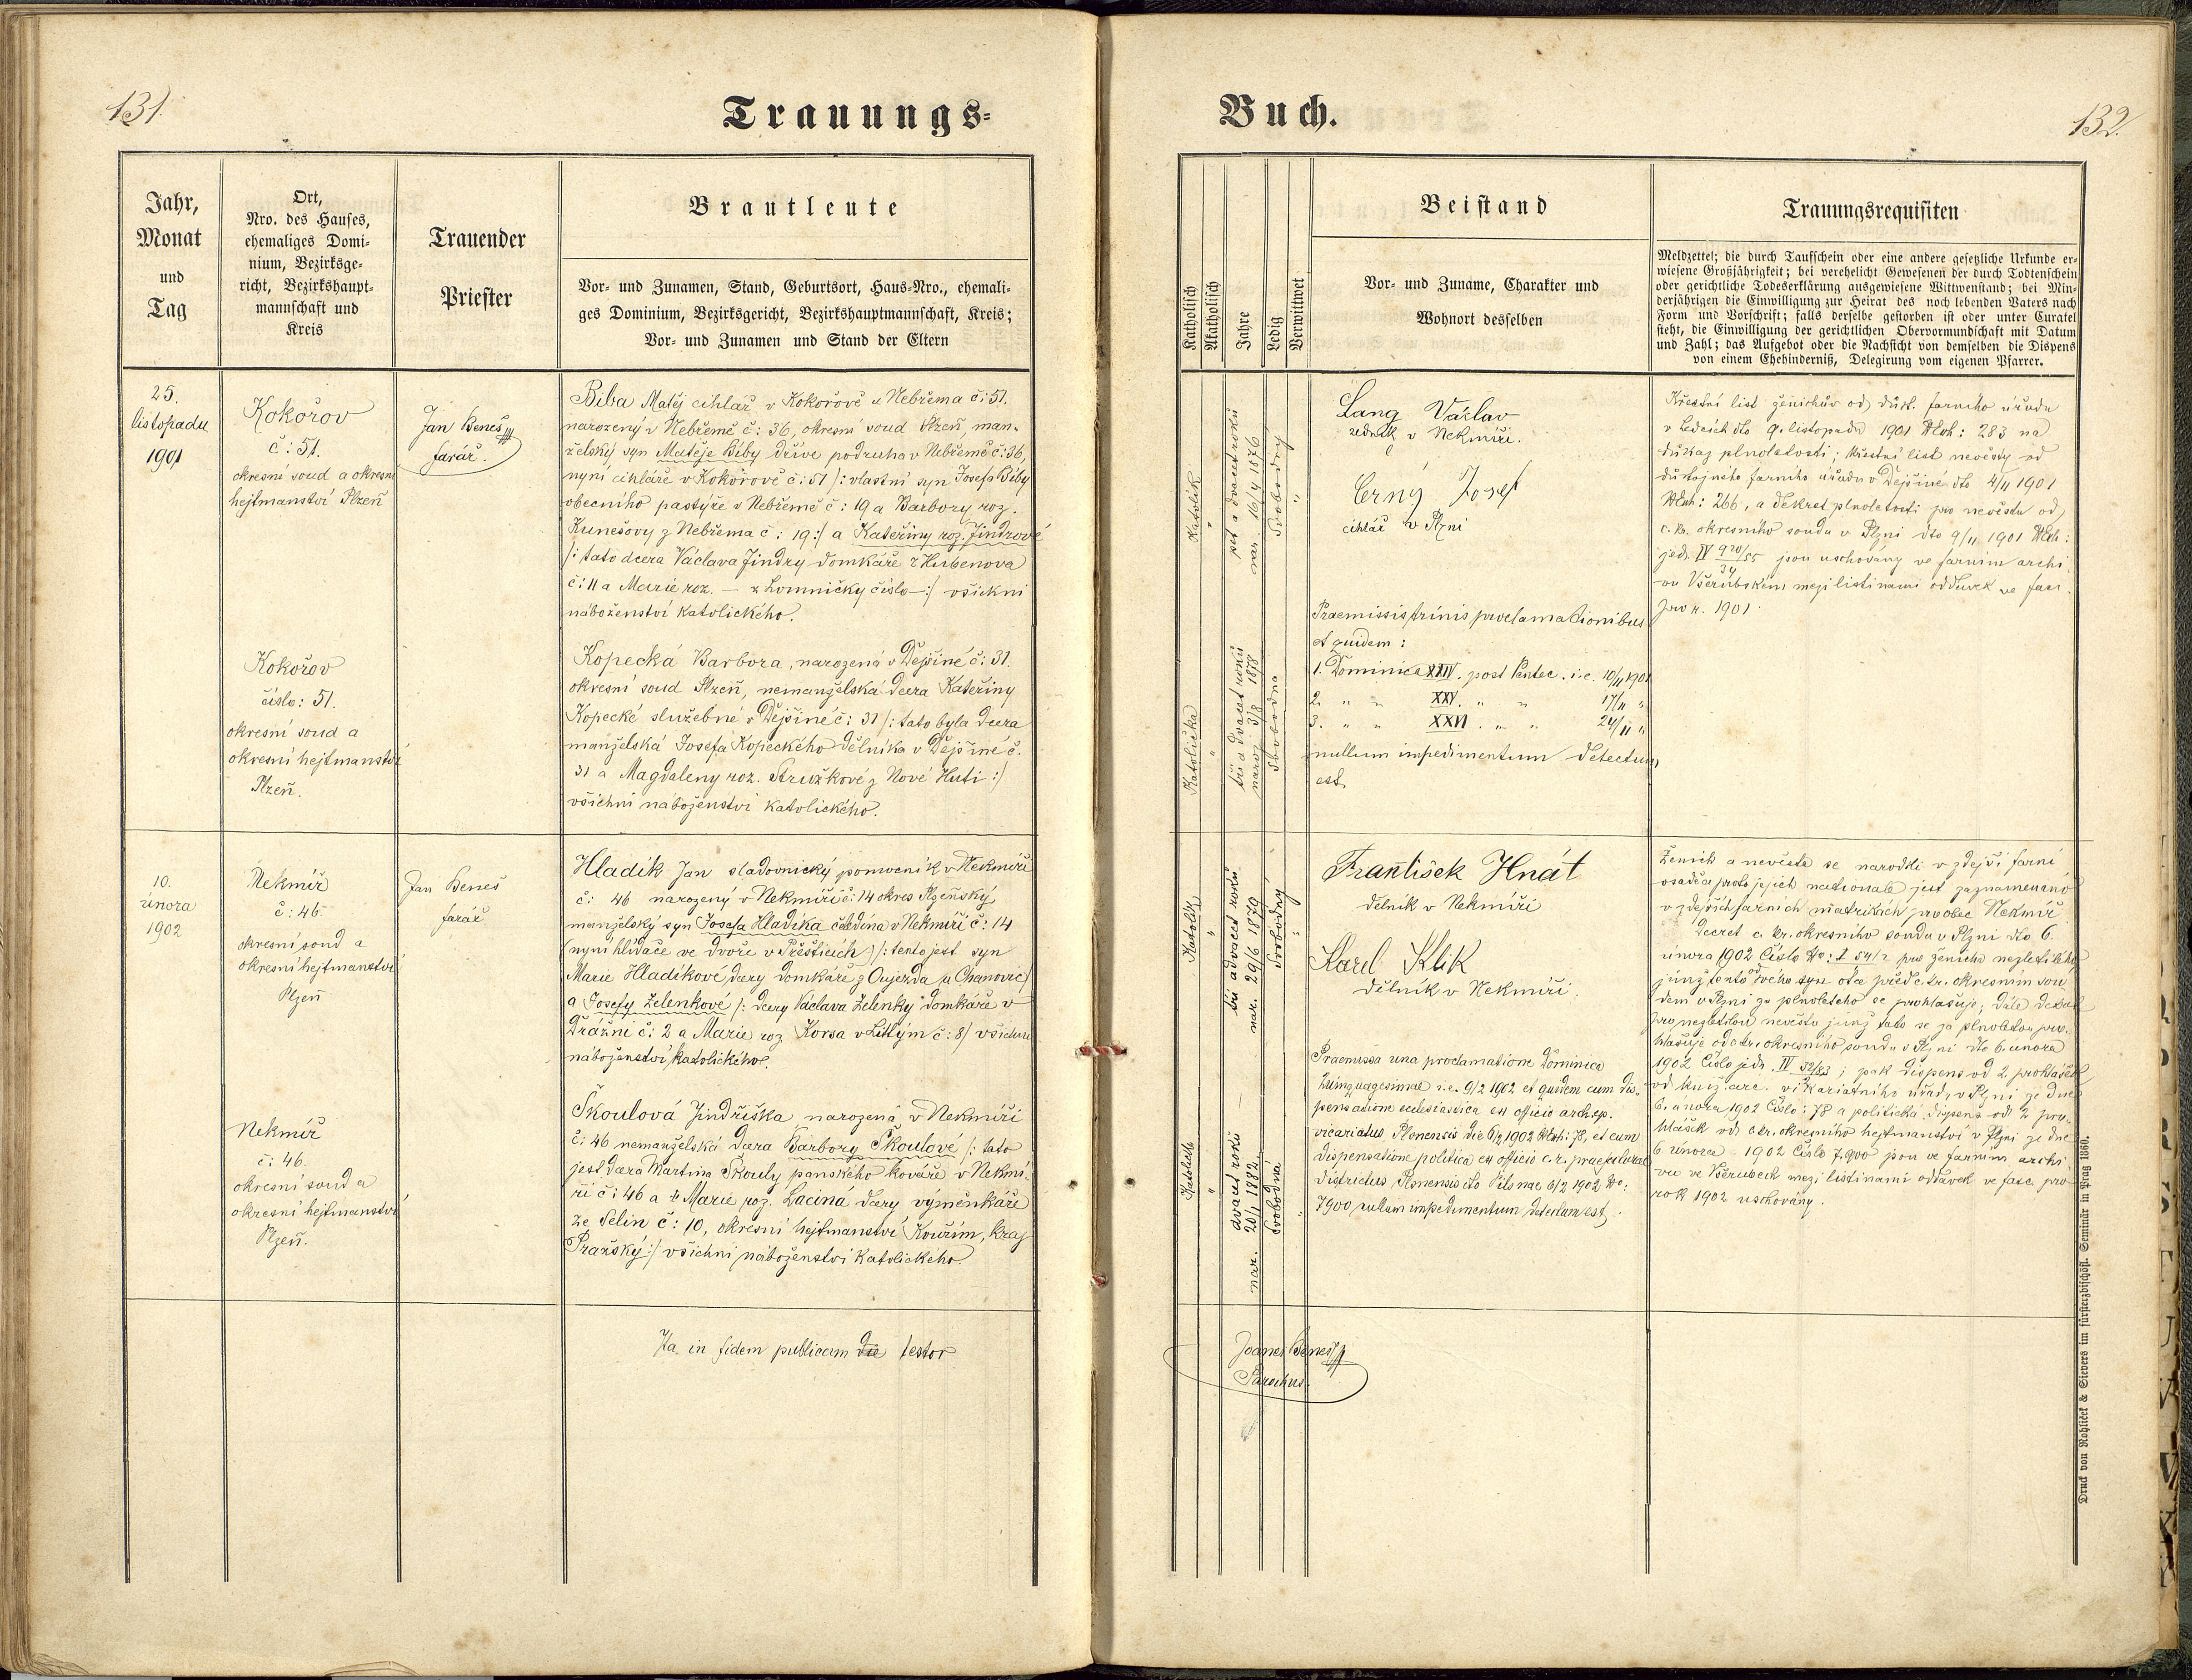 131.
Trauungs-
Jahr,
Monat
und
Tag
Ort,
Nro. des Hauses,
ehemaliges Domi-
nium, Bezirksge-
richt, Bezirkshaupt-
mannschaft und
Kreis
Trauender
Priester
Brautleute
Vor- und Zunamen, Stand, Geburtsort, Haus-Nro., ehemali-
ges Dominium, Bezirksgericht, Bezirkshauptmannschaft, Kreis;
Vor- und Zunamen und Stand der Eltern
25.
listopadu
1901
Kokořov
č: 51.
okresní soud a okresní
hejtmanství Plzeň
Jan Beneš
farář.
Biba Matěj cihlář v Kokořově u Nebřema č: 51.
narozený v Nebřemě č: 36, okresní soud Plzeň, man-
želský syn Matěje Biby dříve podruha v Nebřemě č: 36,
nyní cihláře v Kokořově č: 51 /: vlastní syn Josefa Biby
obecního pastýře v Nebřemě č: 19 a Barbory roz.
Kunešovy z Nebřema č: 19 :/ a Kateřiny roz. Jindrové
/: tato dcera Václava Jindry domkáře z Hubenova
č: 11 a Marie roz. — z Lomničky číslo — :/ všickni
náboženství katolického.
Kokořov
číslo: 51.
okresní soud a
okresní hejtmanství
Plzeň.
Kopecká Barbora, narozená v Dejšině č: 31.
okresní soud Plzeň, nemanželská dcera Kateřiny
Kopecké služebné v Dejšině č: 31 /: tato byla dcera
manželská Josefa Kopeckého dělníka v Dejšině č.
31 a Magdaleny roz. Stružkové z Nové Huti :/
všichni náboženství katolického.
10.
února
1902
Nekmíř
č: 46.
okresní soud a
okresní hejtmanství
Plzeň
Jan Beneš
farář
Hladík Jan sladovnický pomocník v Nekmíři
č: 46 narozený v Nekmíři č: 14 okres Plzeňský
manželský syn Josefa Hladíka čeledína v Nekmíři č: 14
(nyní hlídače ve dvoře v Přešticích) /: tento jest syn
Marie Hladíkové, dcery domkáře z Oujezda u Chanovic)
a Josefy Želenkové /: dcery Václava Želenky domkáře v
Dražni č: 2 a Marie roz Korsa v Litým č: 8/ všichni
náboženství katolického.
Nekmíř
č: 46.
okresní soud a
okresní hejtmanství
Plzeň.
Škoulová Jindřiška narozená v Nekmíři
č: 46 nemanželská dcera Barbory Škoulové /: tato
jest dcera Martina Škouly panského kováře v Nekmí-
ři č: 46 a Marie roz. Laciná dcery výměnkáře
ze Selin č: 10, okresní hejtmanství Kouřim, kraj
Pražský :/ všichni náboženství katolického.
Ita in fidem publicam testor
Buch.
132.
Katholisch
Akatholisch
Jahre
Ledig
Verwittwet
Beistand
Vor- und Zuname, Charakter und
Wohnort desselben
Trauungsrequisiten
Meldzettel; die durch Taufschein oder eine andere gesetzliche Urkunde er-
wiesene Großjährigkeit; bei verehelicht Gewesenen der durch Todtenschein
oder gerichtliche Todeserklärung ausgewiesene Wittwenstand; bei Min-
derjährigen die Einwilligung zur Heirat des noch lebenden Vaters nach
Form und Vorschrift; falls derselbe gestorben ist oder unter Curatel
steht, die Einwilligung der gerichtlichen Obervormundschaft mit Datum
und Zahl; das Aufgebot oder die Nachsicht von demselben die Dispens
von einem Ehehinderniß, Delegirung vom eigenen Pfarrer.
Katolík
"
pět a dvacet roků
nar. 16/4 1876
Svobodný
"
Lang Václav
zedník v Nekmíři.
Černý Josef
cihlář v Plzni
Praemissis trinis proclamationibus
et quidem:
1. Dominica XXIV. post Pentec. i.e. 10/11 1901
2. " " XXV. " " 17/11 "
3. " " XXVI. " " 24/11 "
nullum impedimentum detectum
est.
Křestní list ženichův od důst. farního úřadu
v Ledcích dto 9. listopadu 1901 Exh: 283 na
důkaz plnoletosti; křestní list nevěsty od
důstojného farního úřadu v Dejšině dto 4/11 1901
Exh: 266, a dekret plnoletosti pro nevěstu od
c. k. okresního soudu v Plzni dto 9/11 1901 Exh:
jedn. IV 920/55
34
jsou uschovány ve farním archi-
vu Všerubském mezi listinami oddavek ve fasc.
pro r. 1901.
Katolička
"
tři a dvacet roků
naroz 3/8 1878
Svobodna
Katolík
"
tři a dvacet roků
nar. 29/6 1879
Svobodný
"
František Hnát
dělník v Nekmíři
Karel Klik
dělník v Nekmíři.
Praemissa una proclamatione Dominica
Quinquagesimae i.e. 9/2 1902 et quidem cum dis-
pensatione ecclesiastica ex officio archiep.
vicariatus Plsnensis die 6/2 1902 Exh: 78, et cum
dispensatione politica ex officio c.r. praefecturae
districtus Plsnensis dto Pilsnae 6/2 1902 No:
7900 nullum impedimentum detectum est.
Ženich a nevěsta se narodili v zdejší farní
osadě a proto jejich nationale jest zaznamenáno
v zdejších farních matrikách pro obec Nekmíř
Decret c. kr. okresního soudu v Plzni dto 6.
února 1902 Číslo No: I 54/2 pro ženicha nezletilého
jímž tento svého syna otce před c. kr. okresním sou-
dem v Plzni za plnoletého se prohlašuje; dále dekret
pro nezletilou nevěstu jímž tato se za plnoletou pro-
hlašuje od c. kr. okresního soudu v Plzni dto 6. února
1902 Číslo jedn. IV 32/83; pak dispens od 2 prohlášek
od kníž. arc. vikariatního úřadu v Plzni ze dne
6. února 1902 Číslo: 78 a politická dispens od 2 pro-
hlášek od c. kr. okresního hejtmanství v Plzni ze dne
6 února 1902 Číslo 7.900 jsou ve farním archi-
vu ve Všerubech mezi listinami oddavek ve fasc. pro
rok 1902 uschovány.
Katolička
"
dvacet roků
nar. 20/1 1882.
Svobodná
"
Joanes Beneš
Parochus.
Druck von Rohliček & Sievers im fürsterzbischöfl. Seminär in Prag 1860.